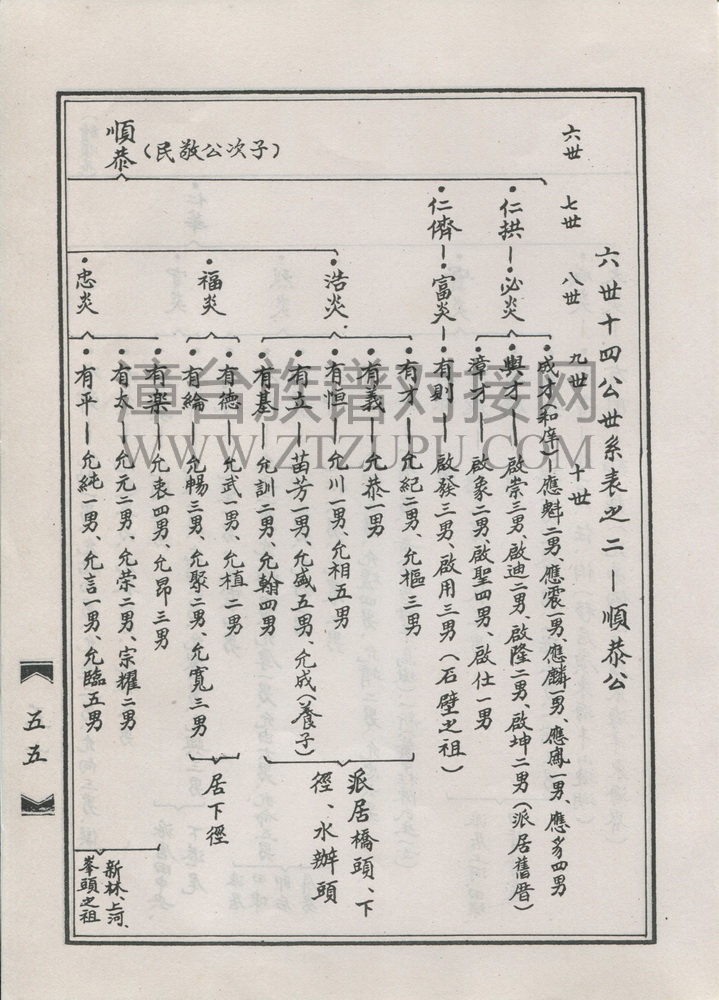 六世十四公世系表之二—順恭公
六世
七世
八世
九世
十世
順恭(民敬公次子)
仁拱—必炎
成才(和庠)—應魁二男、應震一男、應麟一男、應鳳一男、應多四男
興才—啟崇三男、啟迪二男、啟隆二男、啟坤二男(派居舊厝)
漳才—啟象二男、啟聖四男、啟仕一男
仁儕—富炎—有則—啟發三男、啟用三男(石壁之祖)
浩炎
有才—允紀二男、允樞三男
有義—允恭一男
有恒—允川一男、允相五男
有立—苗芳一男、允盛五男、允成(養子)
有基—允訓二男、允翰四男
派居橋頭、下徑、水辦頭
福炎
有德—允武一男、允植二男
有綸—允暢三男、允聚二男、允寬三男
居下徑
忠炎
有樂—允衷四男、允昂三男
有太—允元二男、允荣二男、宗耀二男
有平—允純一男、允言一男、允臨五男
新林、上河、峯頭之祖
五五
漳台族谱对接网
WWW.ZTZUPU.COM